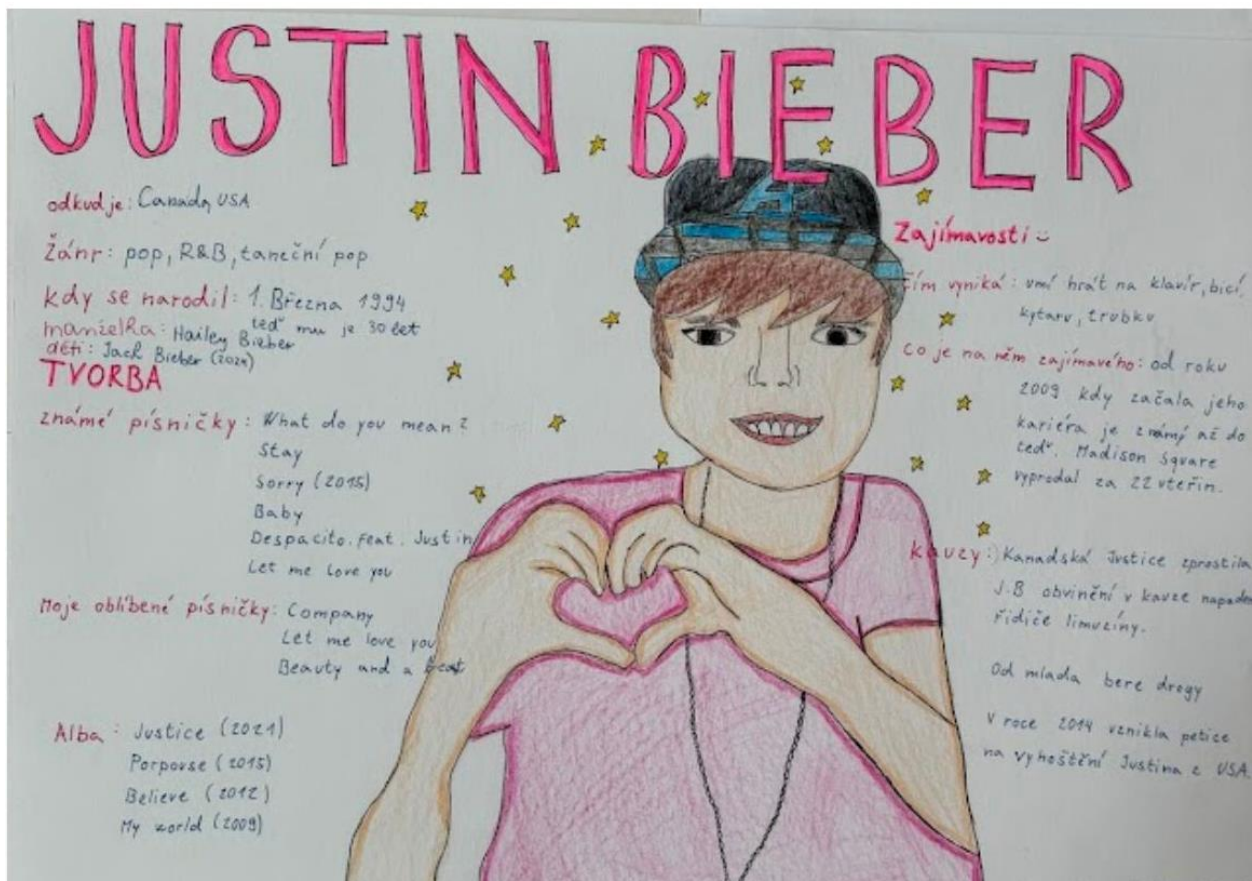 JUSTIN BIEBER
odkud je: Canada, USA
Žánr: pop, R&B, taneční pop
kdy se narodil: 1. Března 1994
teď mu je 30 let
manželka: Hailey Bieber
děti: Jack Bieber (2024)
TVORBA
známé písničky: What do you mean?
Stay
Sorry (2015)
Baby
Despacito. feat. Justin
Let me love you
Moje oblíbené písničky: Company
Let me love you
Beauty and a beat
Alba: Justice (2021)
Porpouse (2015)
Believe (2012)
My world (2009)
Zajímavosti
Čím vyniká: umí hrát na klavír, bicí,
kytaru, trubku
Co je na něm zajímavého: od roku
2009 kdy začala jeho
kariéra je známý až do
teď. Madison Square
vyprodal za 22 vteřin.
Kauzy: Kanadská Justice zprostila
J.B obvinění v kauze napaden
řidiče limuzíny.
Od mlada bere drogy
V roce 2014 vznikla petice
na vyhoštění Justina z USA.